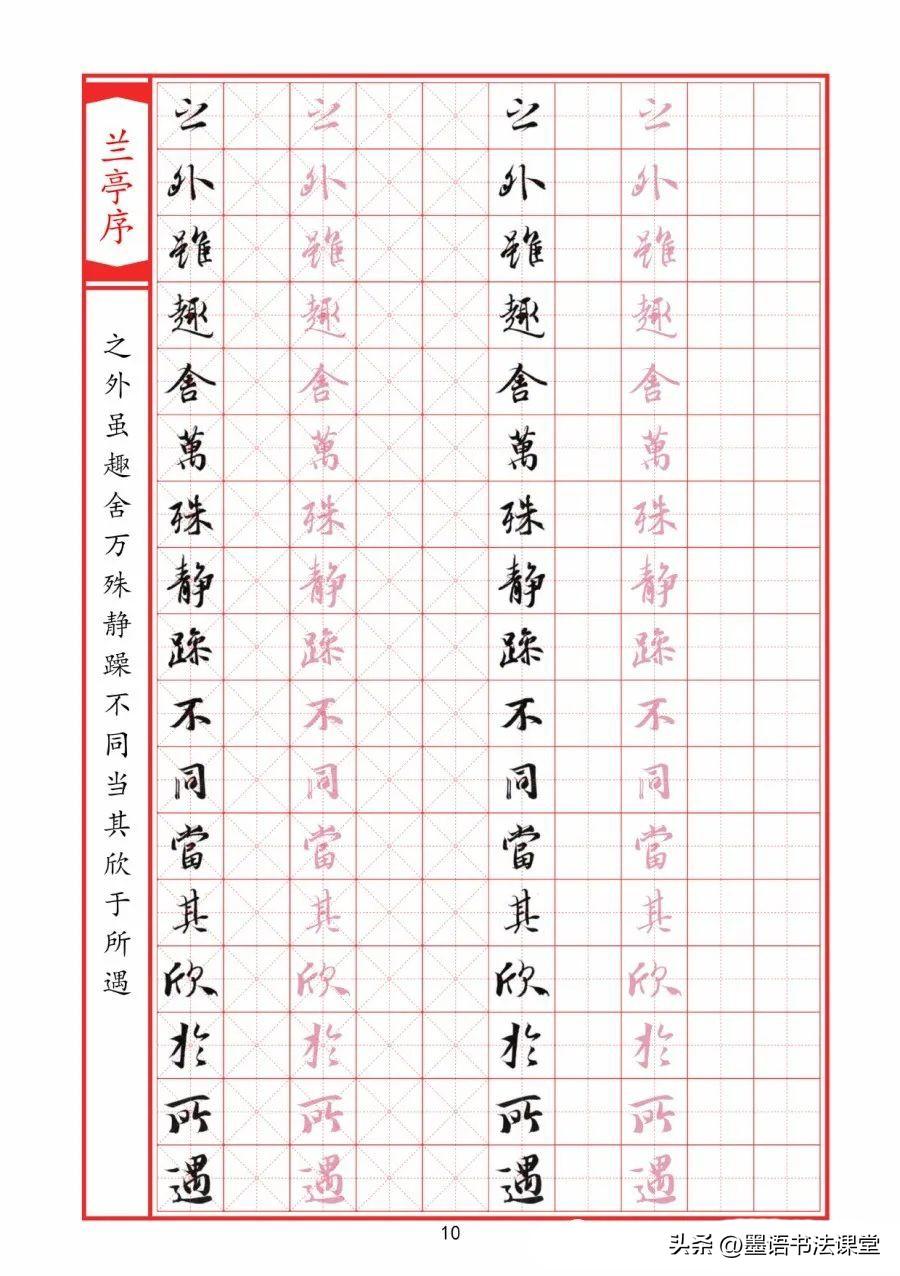 兰亭序
之外虽趣舍万殊静躁不同当其欣于所遇
之外雖趣舍萬殊静躁不同當其欣於所遇
之外雖趣舍萬殊静躁不同當其欣於所遇
之外雖趣舍萬殊静躁不同當其欣於所遇
之外雖趣舍萬殊静躁不同當其欣於所遇
10
头条 @墨语书法课堂